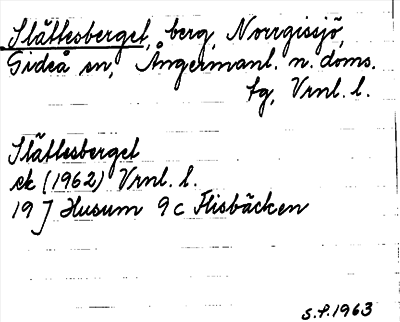 Slåttesberget, berg, Norrgissjö,
Gideå sn, Ångermanl. n. doms.
fg, Vrnl. l.
Slåttesberget
ek (1962) Vrnl. l.
19 J Husum 9 c Flisbäcken
S.P. 1963